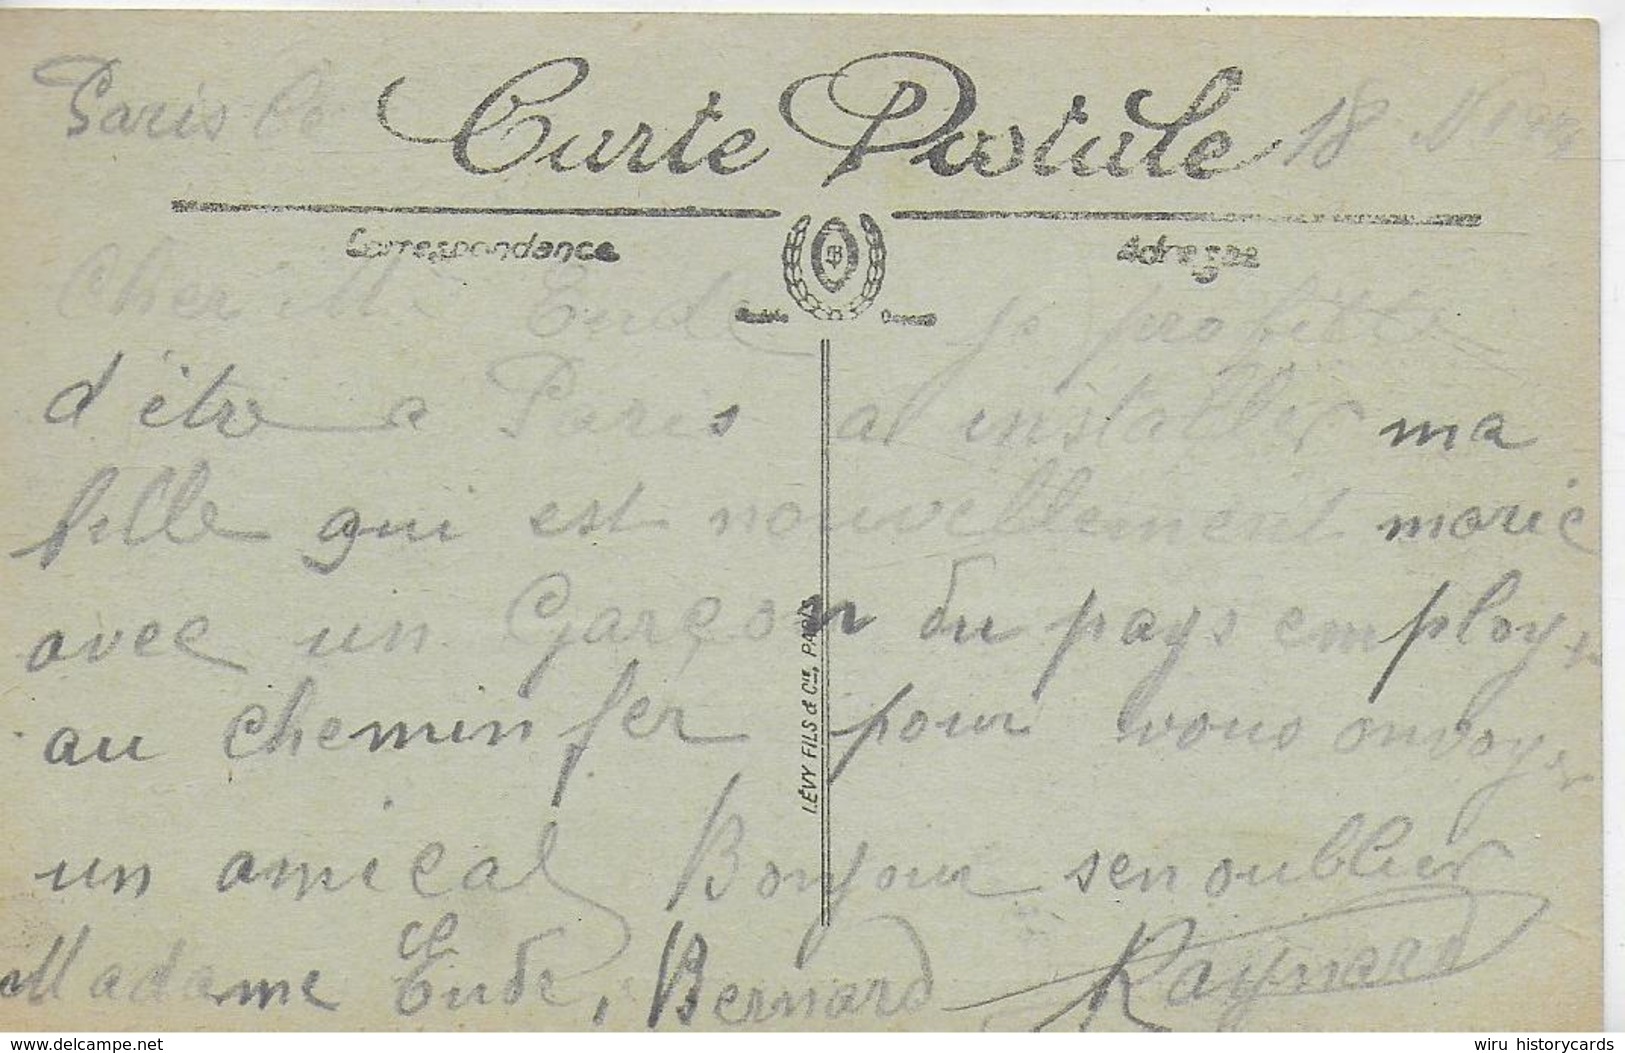 Paris le
Carte Postale
18
Correspondance
Adresse
Cher Mr Eude je profite
d'être a Paris a installer ma
fille qui est nouvellement marie
avec un Garçon du pays employ
au chemin fer pour vous onvoyer
un amical Bonjour sen oublier
Madame Eude, Bernard Raynard
LÉVY FILS & Cie, PARIS
wiru historycards
www.delcampe.net